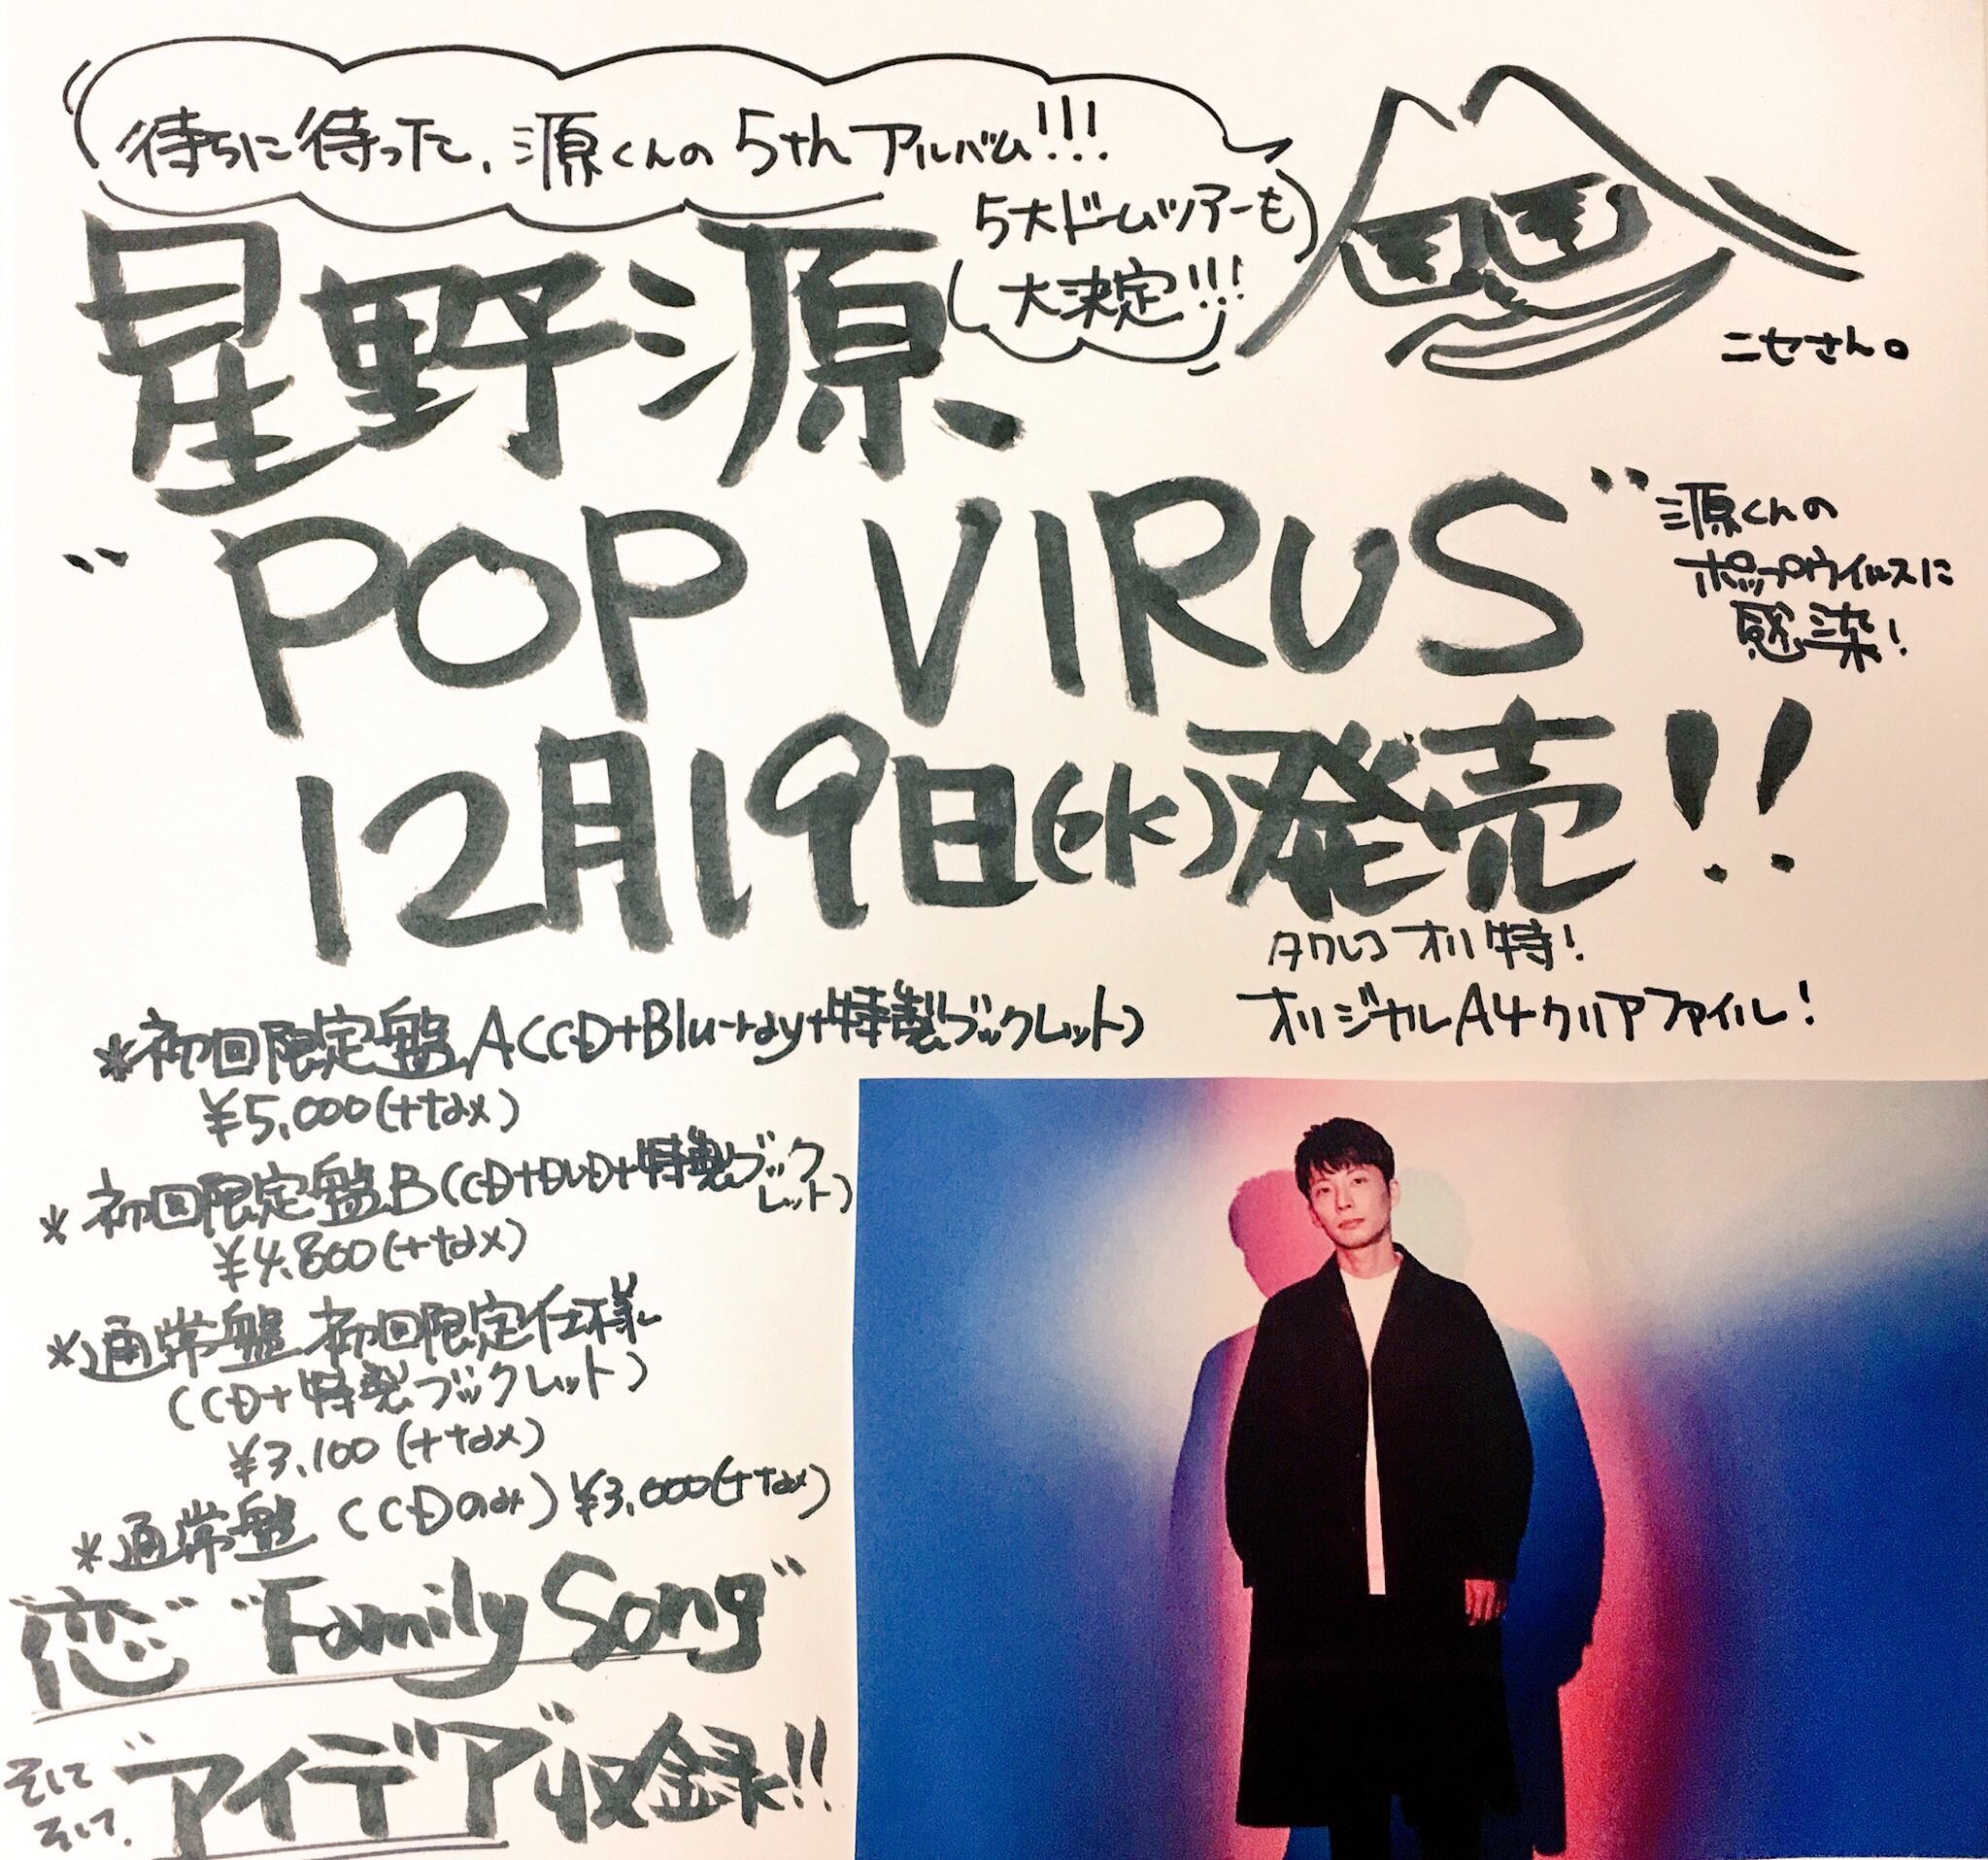 待ちに待った、源くんの5thアルバム!!!
5大ドームツアーも
大決定!!!
ニセさん。
星野源、
"POP VIRUS"
源くんの
ポップウイルスに
感染!
12月19日(水)発売!!
タワレコオリ特!
オリジナルA4クリアファイル!
*初回限定盤A(CD+Blu-ray+特製ブックレット)
¥5,000(+tax)
*初回限定盤B(CD+DVD+特製ブック
レット)
¥4,800(+tax)
*通常盤 初回限定仕様
(CD+特製ブックレット)
¥3,100(+tax)
*通常盤(CDのみ)¥3,000(+tax)
"恋" "Family Song"
そして
そして、
"アイデア"収録!!